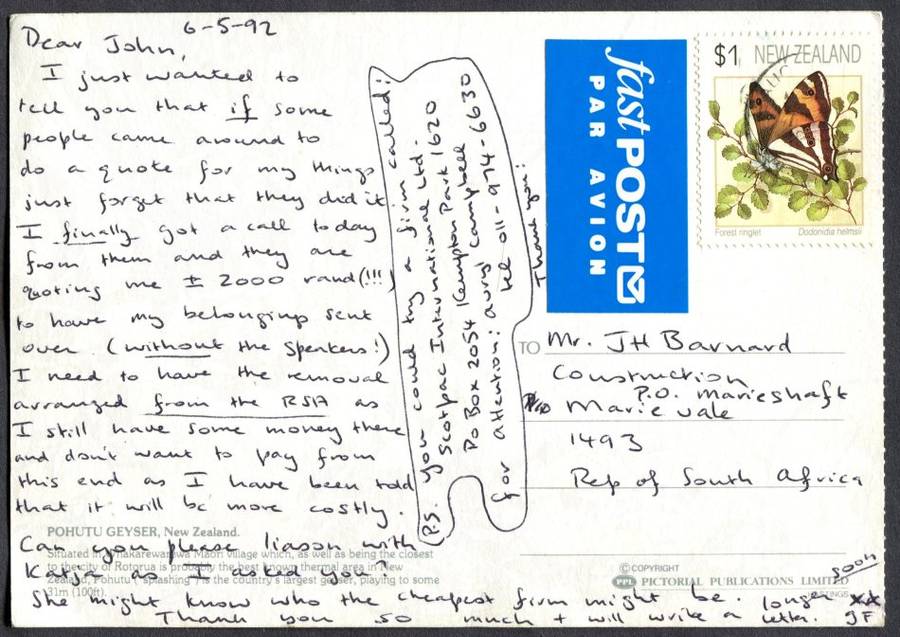 6-5-92
Dear John,
I just wanted to
tell you that if some
people came around to
do a quote for my things
just forget that they did it
I finally got a call today
from them and they are
quoting me ± 2000 rand (!!!)
to have my belongings sent
over (without the speakers!)
I need to have the removal
arranged from the RSA as
I still have some money there
and don't want to pay from
this end as I have been told
that it will be more costly.
Can you please liason with
Katja as I asked you?
She might know who the cheapest firm might be.
Thank you so much + will write a longer letter. soon
xx
JF
P.S. you could try a firm called:
Scotpac International Ltd.
PO Box 2054 Kempton Park 1620
for attention: avryl campbell
tel 011-974-6630
Thank you!
POHUTU GEYSER, New Zealand.
Situated in Whakarewarewa Maori village which, as well as being the closest
to the city of Rotorua is probably the best known thermal area in New
Zealand, Pohutu ("splashing") is the country's largest geyser, playing to some
31m (100ft).
fast POST
PAR AVION
$1 NEW ZEALAND
Forest ringlet Dodonidia helmsii
TO Mr. JH Barnard
Construction
P.O. Marieshaft
Marievale
1493
Rep of South Africa
© COPYRIGHT
PPL PICTORIAL PUBLICATIONS LIMITED
HASTINGS